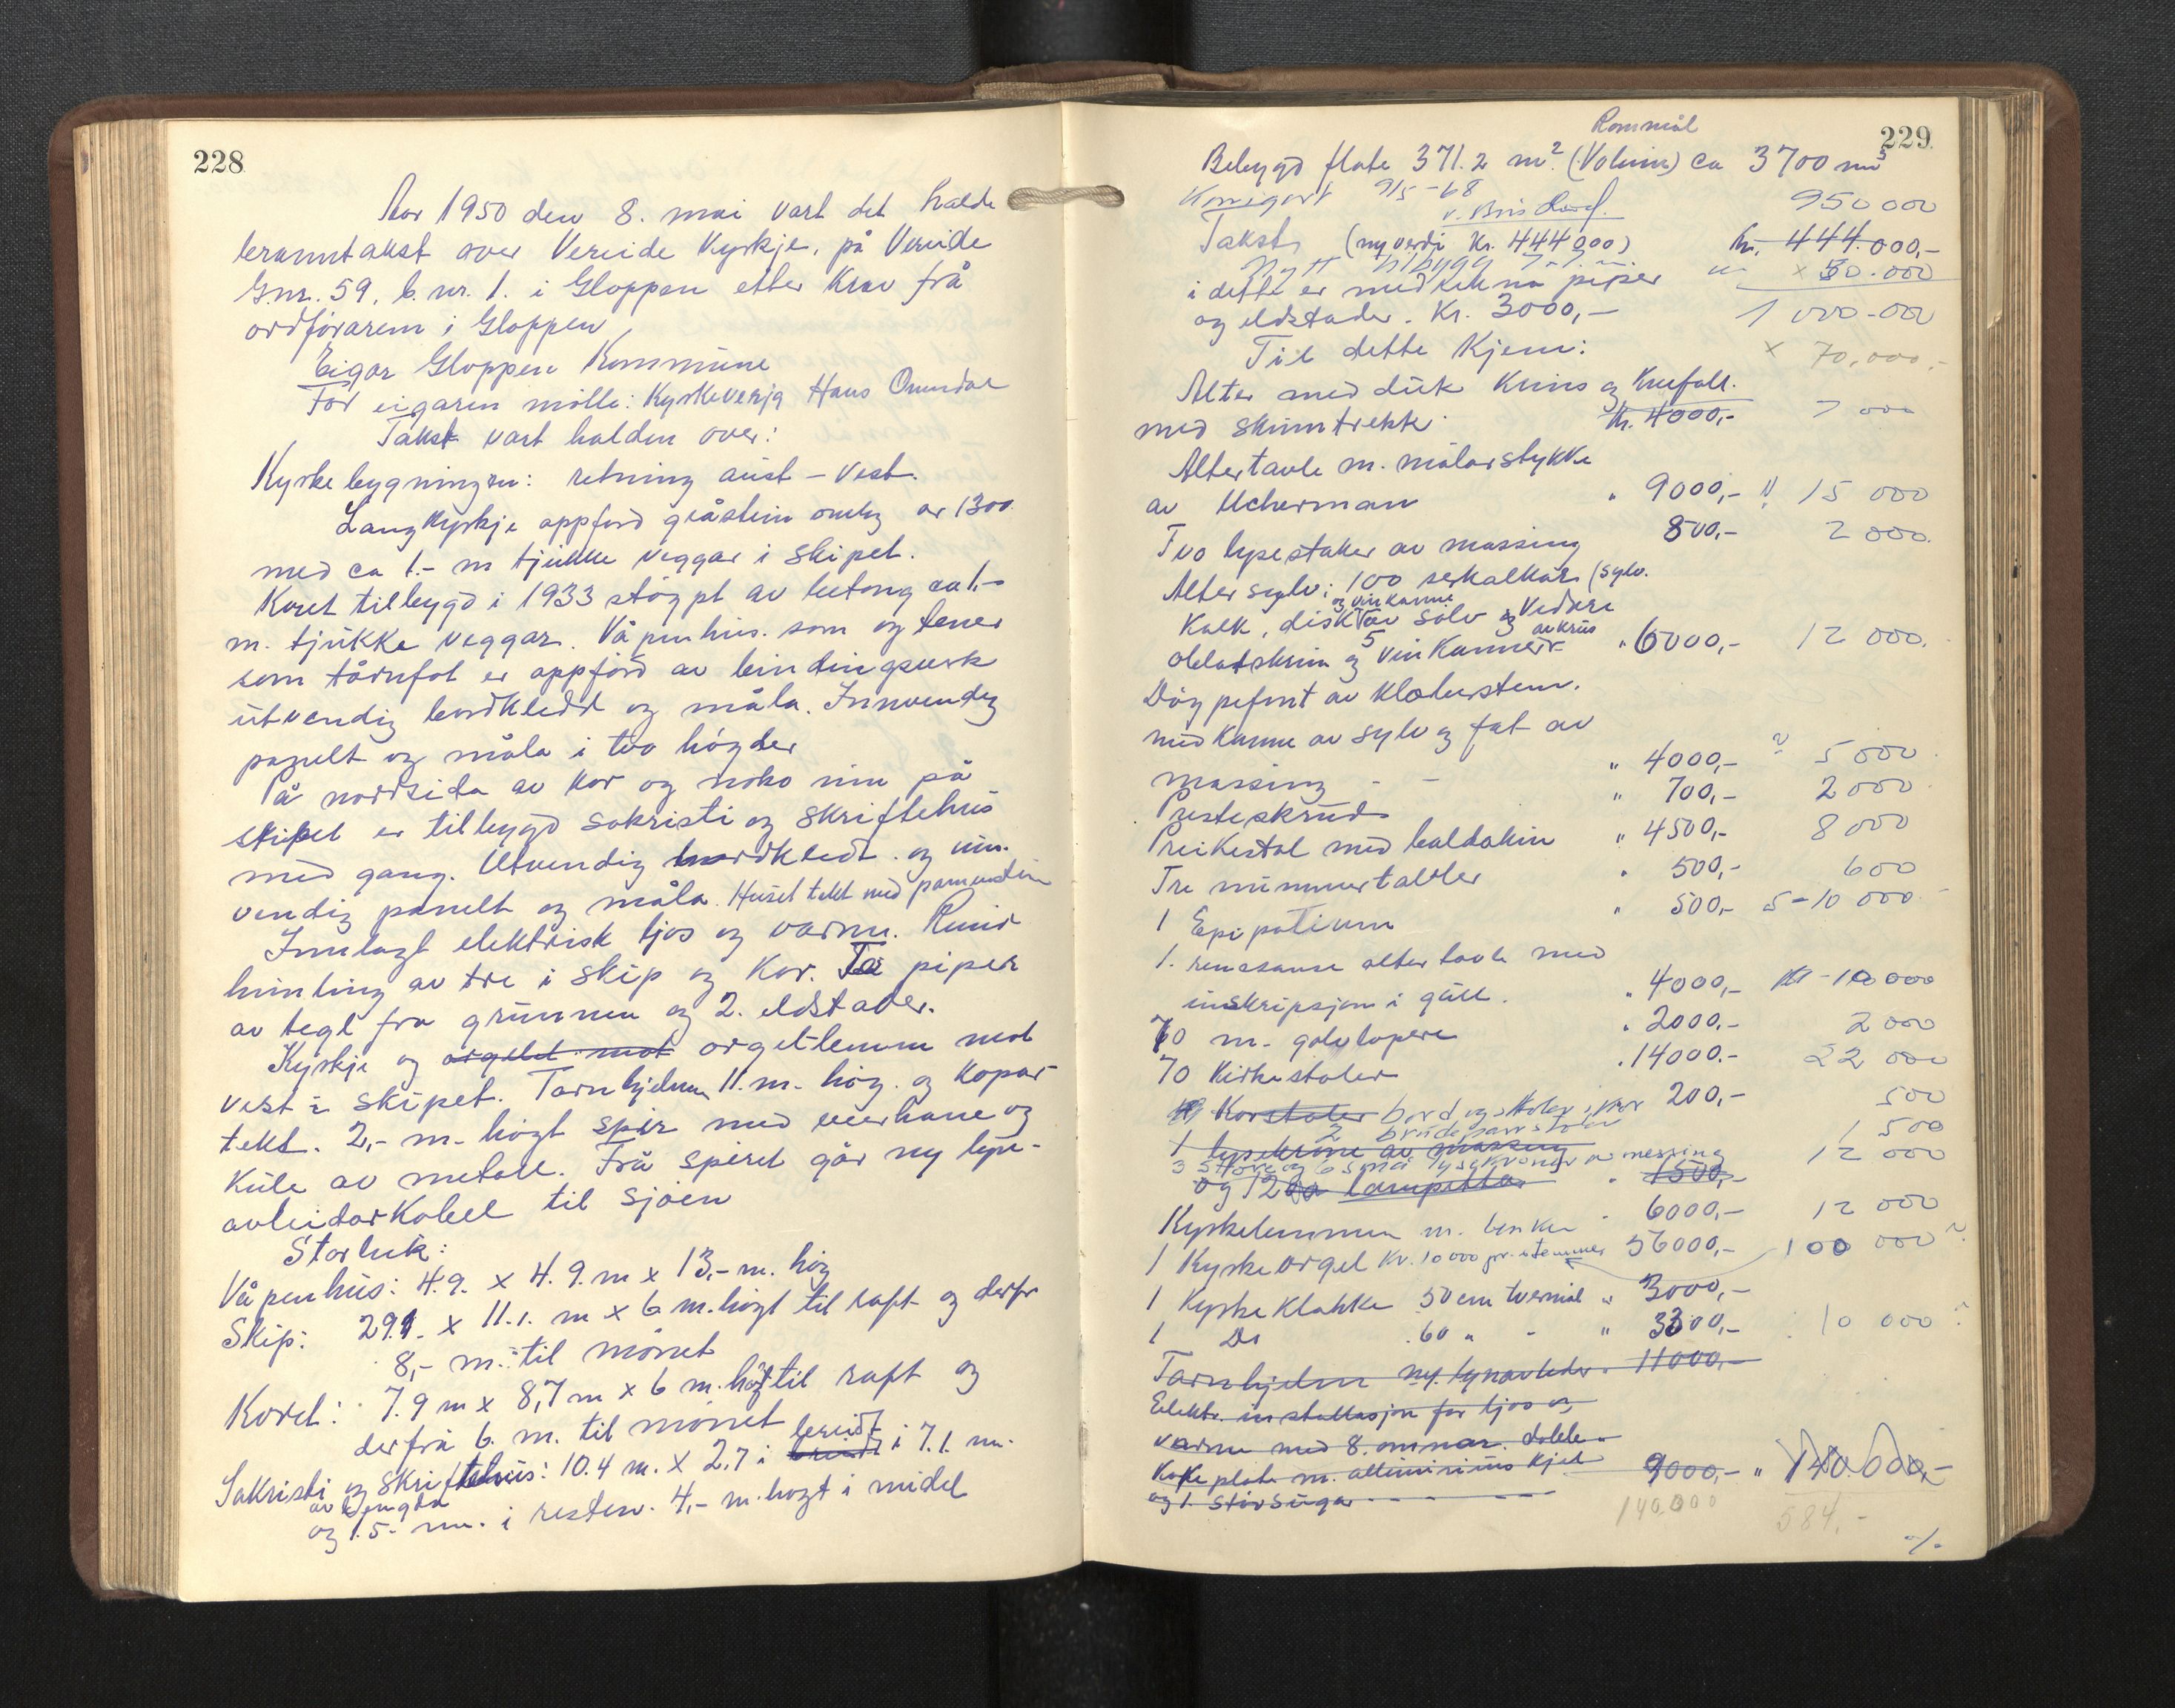 228
Aar 1950 den 8. mai vart det halde
branntakst over Vereide Kyrkje, på Vereide
G.nr. 59, b.nr. 1. i Gloppen etter Krav frå
ordførarem i Gloppen
Eigar Gloppen Kommune
For eigaren møtte: Kyrkeverja Hans
Takst vart halden over:
Kyrkebygningen: retning aust - vest.
Langkyrkje oppførd gråstein omlag år 1300
med ca 1.- m tjukke veggar i skipet.
Koret tilbygd i 1933 støypt av betong ca 1.-
m. tjukke veggar. Våpenhus. som og tener
som tårnfot er oppførd av bindingsverk
utvendig bordkledd og måla. Innvendig
panelt og måla i two høgder
På nordsida av kor og noko inn på
skipet er tilbygd sakristi og skriftehus
med gang. Utvendig bordkledt og inn-
vendig panelt og måla. Huset tekt med pannestein
Innlagt elektrisk ljos og varme. Rund
himling av tre i skip og Kor. To piper
av tegl fra grunnen og 2. eldstader.
Kyrkje og orgelet mot orgel-lemm mot
vest i skipet. Tarnhjelm 11.m. høg. og Kopar-
tekt. 2,- m- høgt spir med veirhane og
Kule av metall. Frå spiret går ny lyn-
avleidarkabel til sjøen
Storleik:
Våpenhus: 4.9. x 4.9. m x 13,- m. høg
Skip: 29.1. x 11.1. m x 6 m. høgt til raft og derfr
8,- m. til mønet
Koret: 7.9 m x 8,7 m x 6 m. høgt til raft og
derfrå 6. m. til mønet
Sakristi og skriftehus: 10.4 m. x 2.7 i breidd i 7.1. m.
av lengda
og 1.5- m. i resten. 4,- m. høgt i midel
229
Rommål
Bebygd flate 371.2 m² (Volum) ca 3700 m³
Korrigert 9/5-68 950 000
Takst (ny verdi Kr. 444000) Kr. 444.000,-
Nytt tilbygg x 50.000
i dette er medrekna piper
og eldstader. Kr. 3000,- 1 000-000
Til dette Kjem: x 70,000,-
Alter med duk Krins og Knefall.
med skinntrekk. Kr. 4000,- 7 000
Altertavle m. målarstykke
av Ucherman " 9000,- 15 000
Two lysestaker av massing 800,- 2 000.
Alter sylv: 100 serkalkar (sylv.
og vinkanne
Kalk, disk av sølv og Vidare
av krus
oblatskrin og 5 vinkanner " 6000,- 12 000.
Døypefont av Kleberstein.
med Kanne av sylv og fat av
massing - - " 4000,- ? 5 000
Presteskrud " 700,- 2 000
Preikestol med baldakin " 4500,- 8 000
Tre nummertavler " 500,- 600
1 Epipatium " 500,- 5-10 000
1. renesanse altertavle med
inskripsjon i gull. " 4000,- 10 000
70 m- golvlopere " 2000.- 2 000
70 Kirkestoler " 14000.- 22 000
Korstoler bord og stolar i kor 200,- 500
2 brudeparstolar 1 500
1 lysekrone av massing
3 store og 6 små lysekroner av messing 12 000
og 12 lampettar " 1500,-
Kyrkelemmen m. benker " 6000,- 12 000
1 Kyrkeorgel Kr. 10 000 pr. stemmer 56000,- 100 000 ?
1 Kyrkeklokke 50 cm tvermål " 3000,-
1 Do . 60 " - " 3300,- 10 000 ?
Tarnhjelm ny lynavleder " 11000,-
Elektr. installasjon for ljos og
varme med 8. omnar. doble-
Kokeplate m. alluminiums kjel
og 1. støvsugar - - - - 9000,- " 140.000,-
140.000 584,-
./.